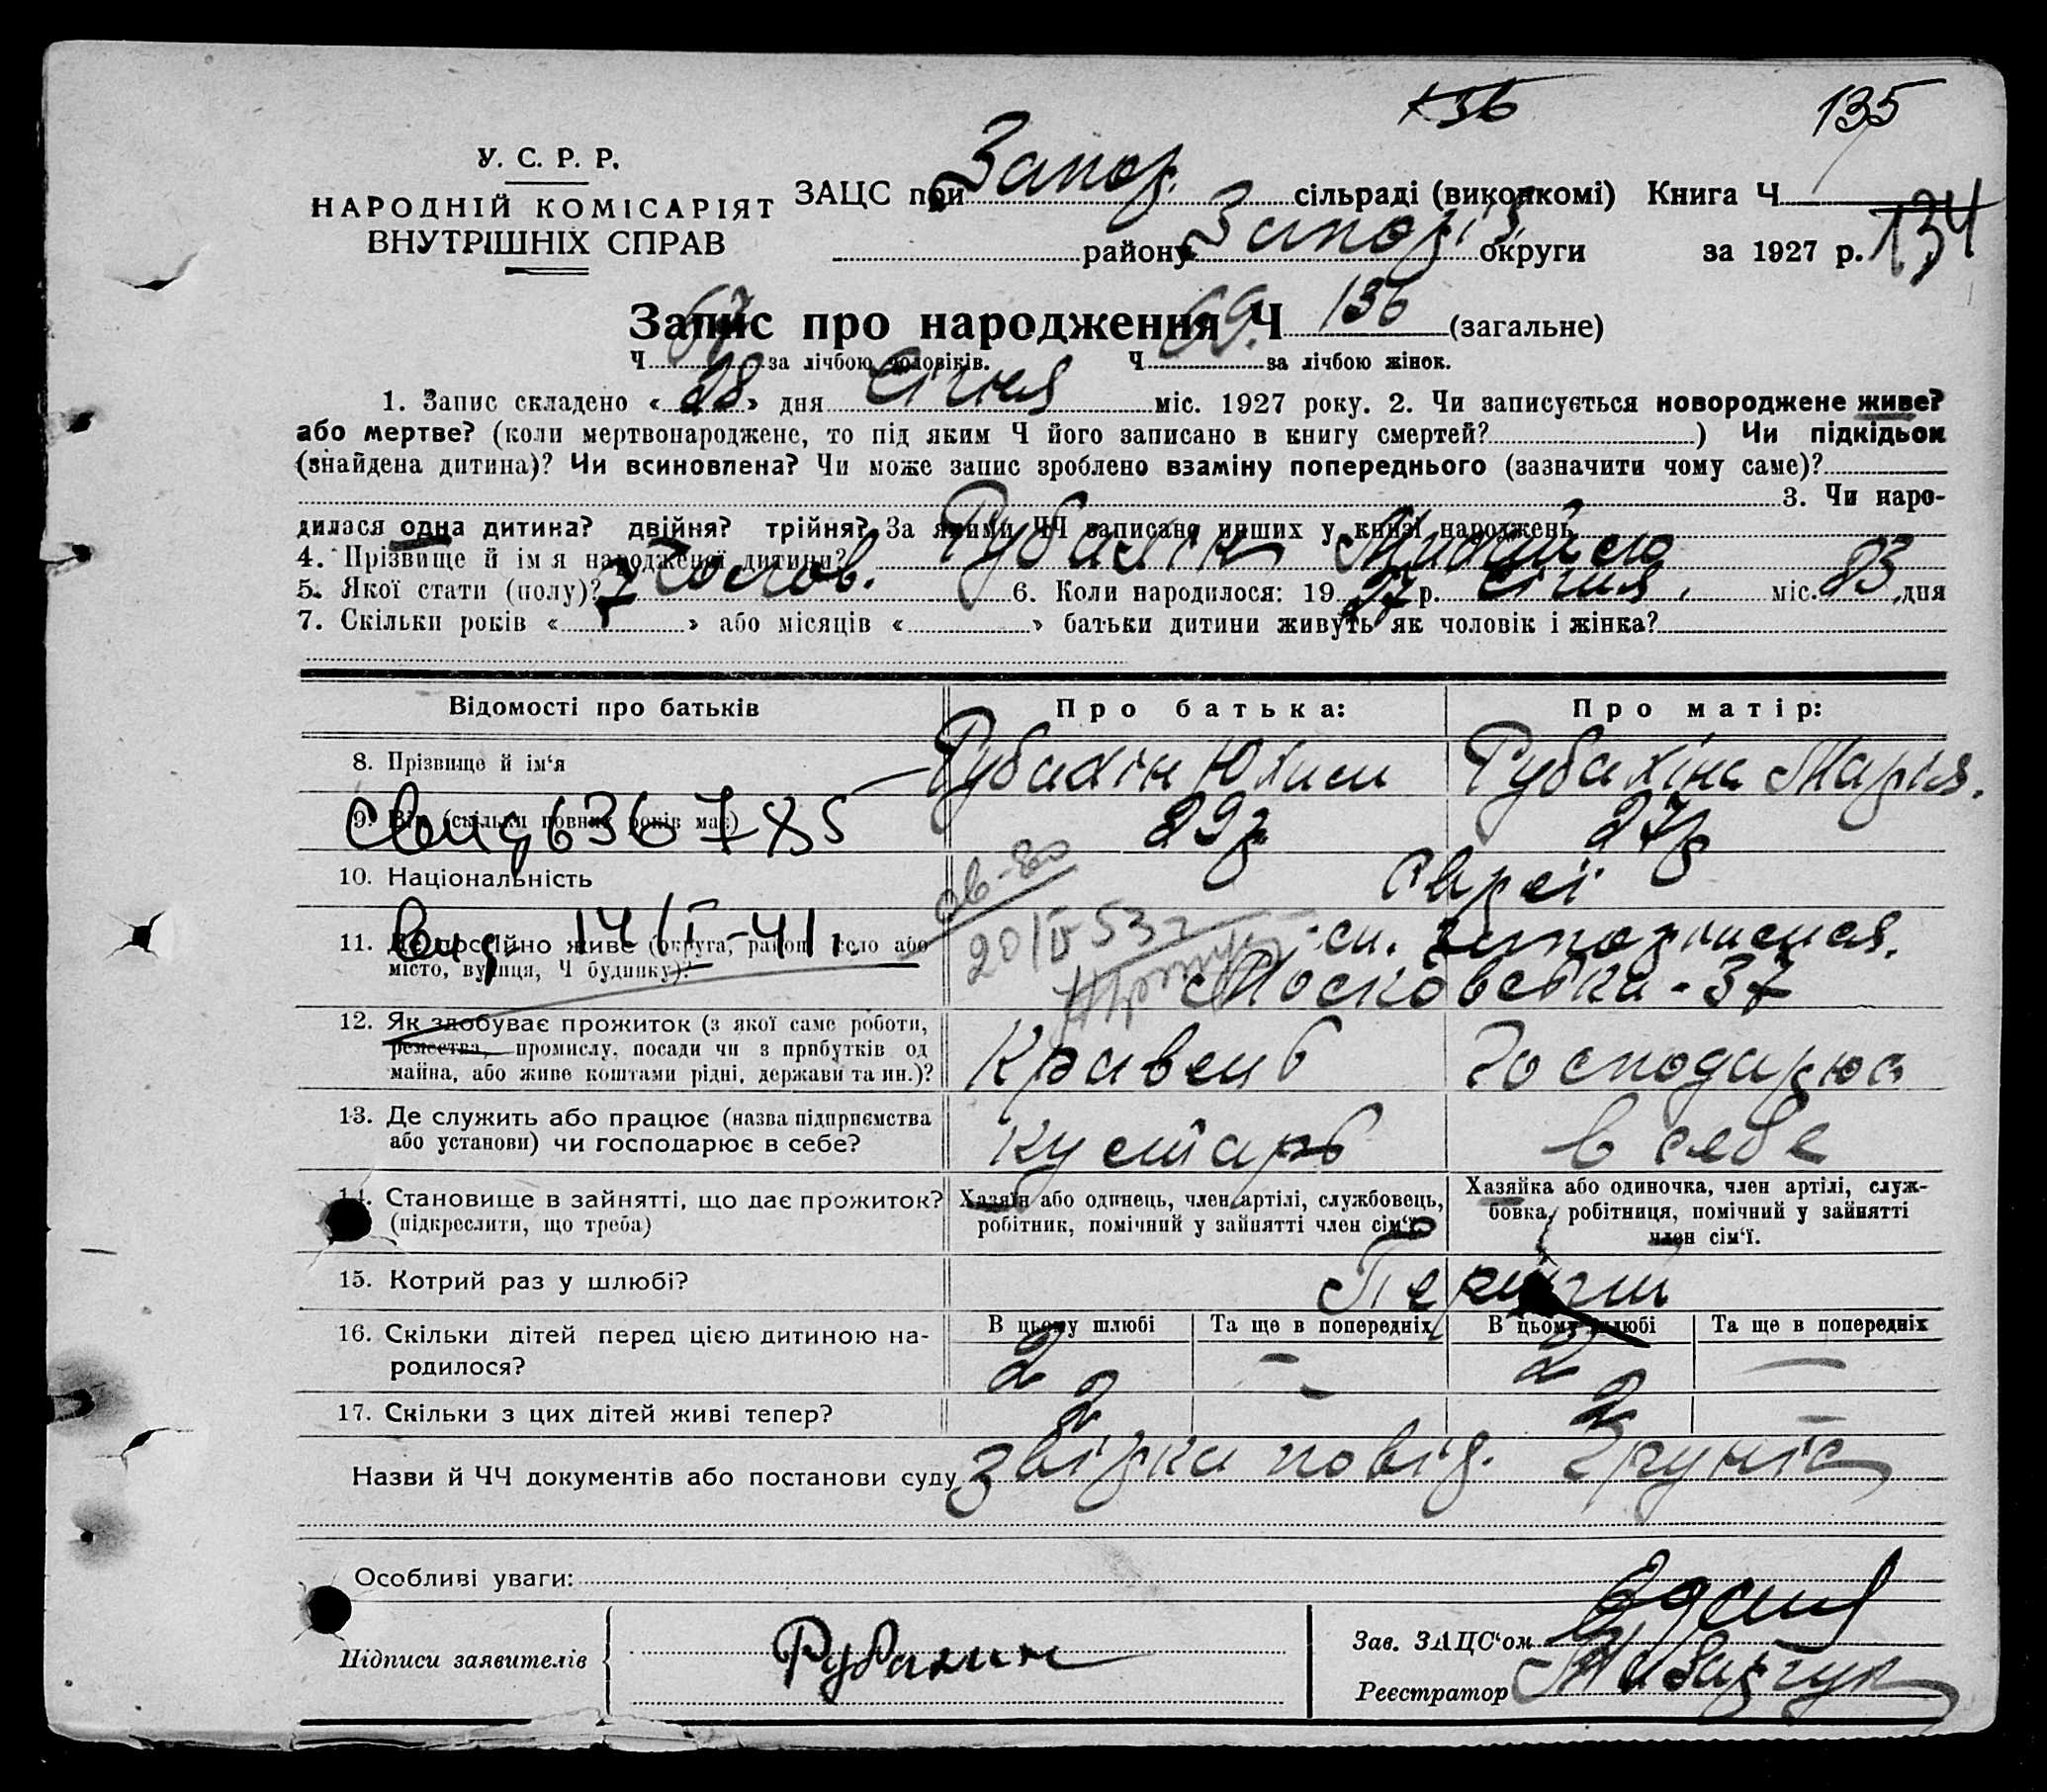 136
135
У. С. Р. Р.
НАРОДНІЙ КОМІСАРІЯТ
ВНУТРІШНІХ СПРАВ
ЗАЦС при Запор. сільраді (виконкомі) Книга Ч
району Запоріз. округи за 1927 р. 134
Запис про народження Ч 136 (загальне)
Ч 67 за лічбою чоловіків. Ч 69. за лічбою жінок.
1. Запис складено « 28 » дня Січня міс. 1927 року. 2. Чи записується новороджене живе?
або мертве? (коли мертвонароджене, то під яким Ч його записано в книгу смертей? ) Чи підкідьок
(знайдена дитина)? Чи всиновлена? Чи може запис зроблено взаміну попереднього (зазначити чому саме)?
3. Чи наро-
дилася одна дитина? двійня? трійня? За якими ЧЧ записано инших у книзі народжень
4. Прізвище й ім я народженої дитини? Рубахін Михайло
5. Якої стати (полу)? чолов. 6. Коли народилося: 19 27 р. січня, міс. 23 дня
7. Скільки років « 7 » або місяців « » батьки дитини живуть як чоловік і жінка?
Відомості про батьків Про батька: Про матір:
8. Прізвище й ім‘я Рубахін Юхим Рубахіна Марія.
9. Вік (скільки повних років має) 29 р. 27 р
Свид 636785
10. Національність Євреї
11. Де постійно живе (округа, район, село або
місто, вулиця, Ч будинку)?
Вид. 14/I-41 г.
20/IV 53 г
Московська - 37
12. Як здобуває прожиток (з якої саме роботи,
ремества, промислу, посади чи з прибутків од
майна, або живе коштами рідні, держави та ин.)? Кравець Господарює
13. Де служить або працює (назва підприємства
або установи) чи господарює в себе? кустарь в себе
14. Становище в зайнятті, що дає прожиток?
(підкреслити, що треба)
Хазяїн або одинець, член артілі, службовець,
робітник, помічний у зайнятті член сім‘ї.
Хазяйка або одиночка, член артілі, служ-
бовка, робітниця, помічний у зайнятті
член сім‘ї.
15. Котрий раз у шлюбі? Перший
16. Скільки дітей перед цією дитиною на-
родилося?
В цьому шлюбі Та ще в попередніх В цьому шлюбі Та ще в попередніх
2 - 2 -
17. Скільки з цих дітей живі тепер? 2 - 2 -
Назви й ЧЧ документів або постанови суду звірка повід.
Особливі уваги:
Підписи заявителів Рубахин
Зав. ЗАЦС‘ом
Реєстратор